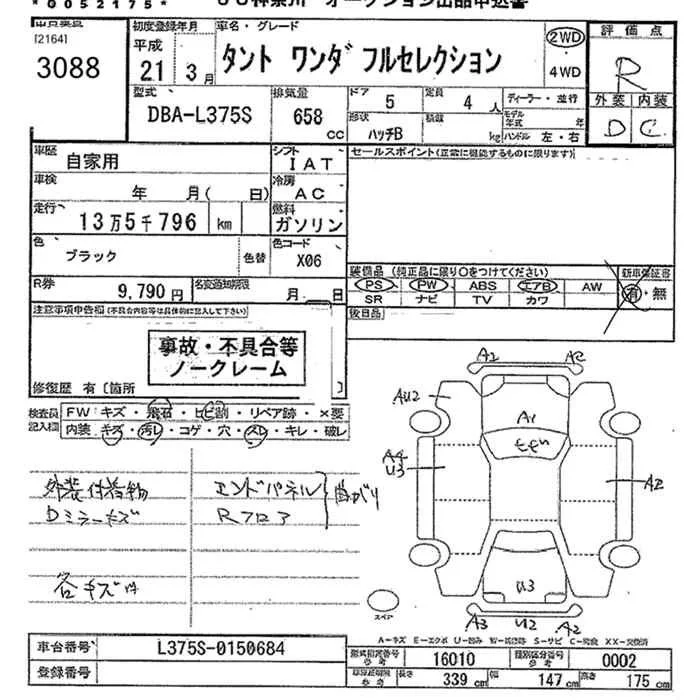 *0052175*
オークション出品申込書
[2164]
3088
初度登録年月
平成
21 3月
車名・グレード
タント ワンダフルセレクション
2WD
4WD
評価点
R
外装 内装
D C
型式
DBA-L375S
排気量
658 CC
ドア 5
定員 4 人
形状 ハッチB
積載 kg
ディーラー・並行
モデル年式 年
ハンドル 左・右
車歴
自家用
シフト
IAT
セールスポイント(正常に機能するものに限ります)
車検
年 月( 日)
冷房
AC
走行
13万5千796 km
燃料
ガソリン
色
ブラック
色替
色コード
X06
装備品 (純正品に限り○をつけてください)
PS PW ABS エアB AW
SR ナビ TV カワ
新車保証書
有・無
後日品
R券
9,790円
名変通知期限
月 日
注意事項申告欄(不具合内容等は具体的に記入して下さい)
事故・不具合等
ノークレーム
修復歴 有〔箇所 〕
検査員記入欄
FW キズ・飛石・ヒビ割・リペア跡・×要
内装 キズ・汚レ・コゲ・穴・スレ・キレ・破レ
外装付着物
Dミラーキズ
各キズ
エンドパネル
Rフロア
曲がり
A2
AU2
A1
A4
U3
A2
U3
A3 U2 A2
スペア
A-キズ E-エクボ U-凹み S-サビ C-腐食 XX-交換済
車台番号
L375S-0150684
登録番号
型式指定番号 参考
16010
類別区分番号 参考
0002
参考 長さ 339 cm 幅 147 cm 高さ 175 cm